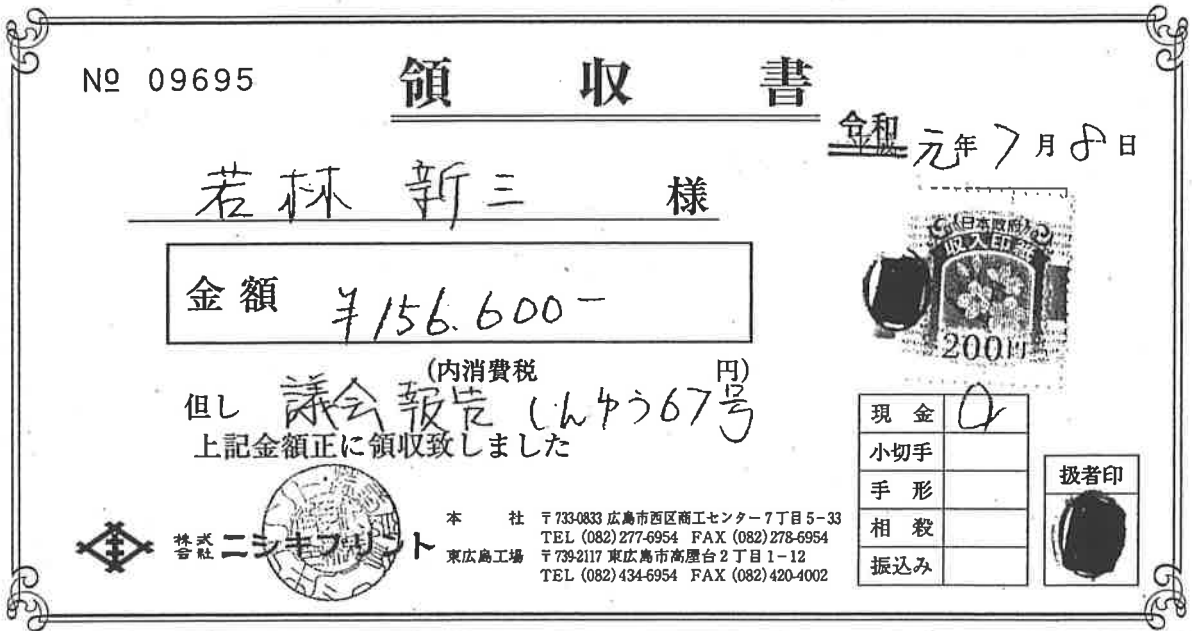 № 09695
領収書
令和 元年 7月 8日
若林 新三 様
日本政府
収入印紙
200円
金額 ¥156.600-
(内消費税 円)
但し 議会報告 しんゆう67号
上記金額正に領収致しました
現金
小切手
手形
相殺
振込み
扱者印
株式会社 ニシキプリント
本社 〒733-0833 広島市西区商工センター7丁目5-33
TEL (082)277-6954 FAX (082)278-6954
東広島工場 〒739-2117 東広島市高屋台2丁目1-12
TEL (082)434-6954 FAX (082)420-4002